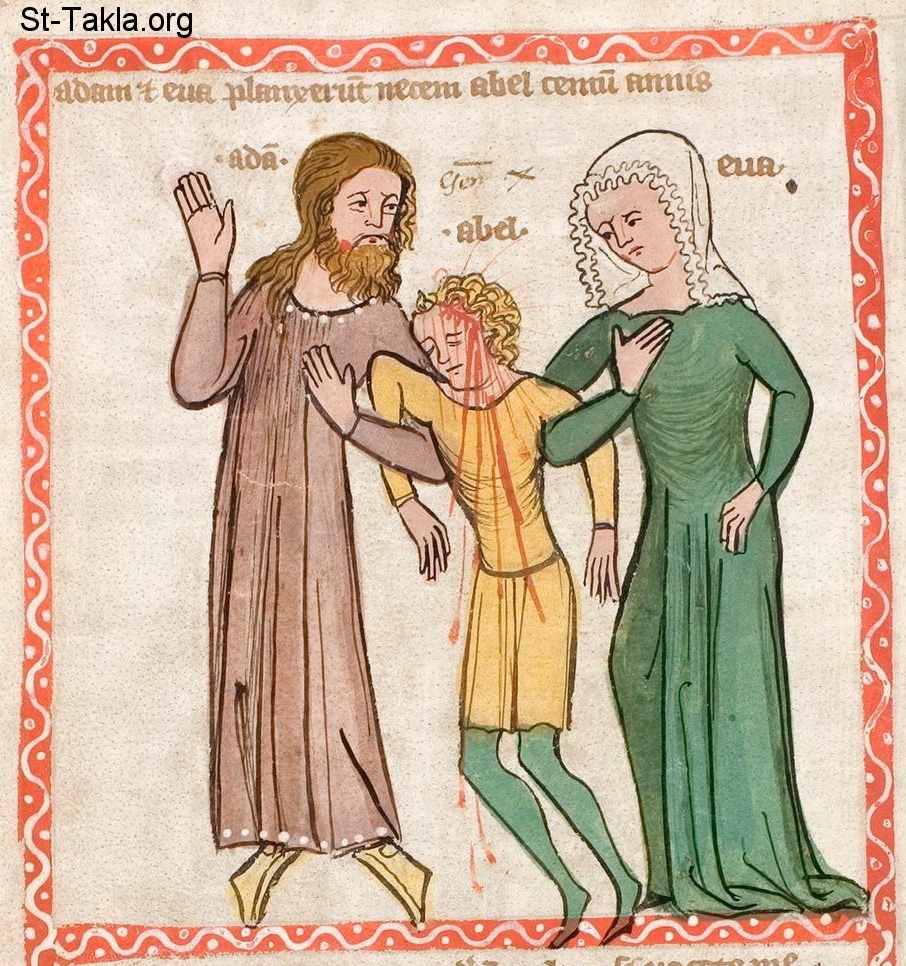 St-Takla.org
adam ⁊ eua planxerūt necem abel centū annis
·adā· eua·
Gen̄ x
·abel·